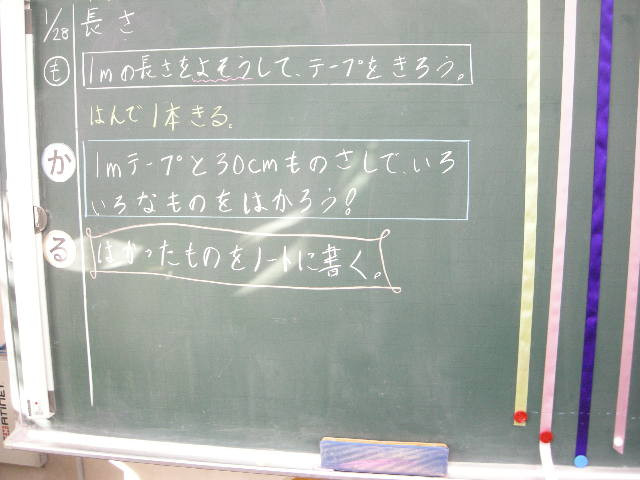 1/28 長さ
も 1mの長さをよそうして、テープをきろう。
はんで1本きる。
か 1mテープと30cmものさしで、いろ
いろなものをはかろう!
る はかったものをノートに書く。